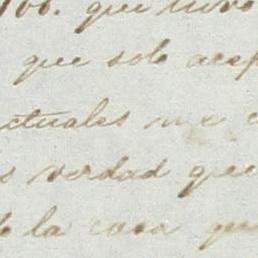 que tuvo
que solo acep
ctuales me c
s verdad que
de la casa que